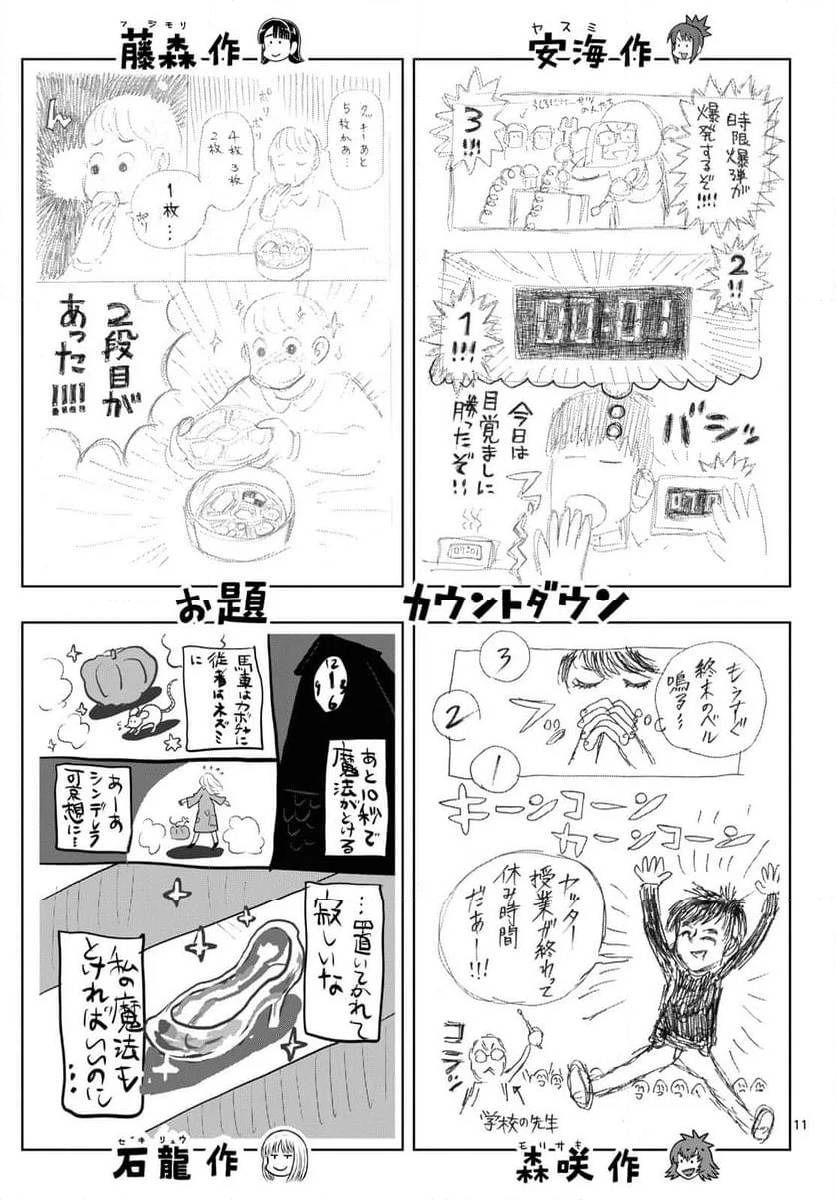 ヤスミ
安海 作
時限爆弾が
爆発するぞ!!!!
3!!!
2!!
00:01
1!!!
バシッ
今日は
目覚ましに
勝ったぞ!!
07:01
フジモリ
藤森 作
クッキーあと
5枚かぁ…
ポリポリ
4枚 3枚
2枚
1枚…
ポリ
ん
2段目が
あった!!!!
お題 カウントダウン
もうすぐ
終末のベル
鳴る…
3
2
1
キーンコーン
カーンコーン
ヤッター
授業が終わって
休み時間
だぁー!!!
コラ
学校の先生
モリサキ
森咲 作
12
9
3
6
あと10秒で
魔法がとける
馬車はカボチャに
従者はネズミ
に
あーあ
シンデレラ
可哀想に…
…置いてかれて
寂しいな
私の魔法も
とければいいのに
…
セキリュウ
石龍 作
11